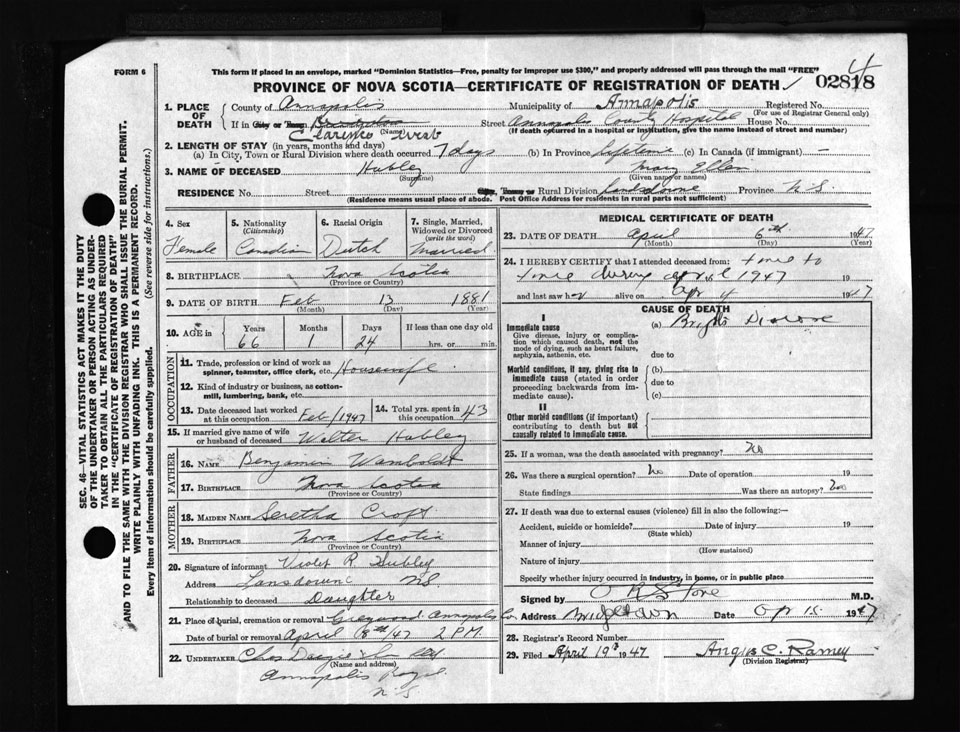 FORM 6
This form if placed in an envelope, marked "Dominion Statistics—Free, penalty for improper use $300," and properly addressed will pass through the mail "FREE"
4
02818
PROVINCE OF NOVA SCOTIA—CERTIFICATE OF REGISTRATION OF DEATH
SEC. 46—VITAL STATISTICS ACT MAKES IT THE DUTY
OF THE UNDERTAKER OR PERSON ACTING AS UNDER-
TAKER TO OBTAIN ALL THE PARTICULARS REQUIRED
IN THE "CERTIFICATE OF REGISTRATION OF DEATH"
AND TO FILE THE SAME WITH THE DIVISION REGISTRAR WHO SHALL ISSUE THE BURIAL PERMIT.
WRITE PLAINLY WITH UNFADING INK. THIS IS A PERMANENT RECORD.
Every item of information should be carefully supplied. (See reverse side for instructions.)
1. PLACE OF DEATH
County of Annapolis Municipality of Annapolis Registered No.
(For use of Registrar General only)
If in City or Town Street Annapolis County Hospital House No.
(Name)
(If death occurred in a hospital or institution, give the name instead of street and number)
Clarence
2. LENGTH OF STAY (in years, months and days)
(a) In City, Town or Rural Division where death occurred 7 days (b) In Province lifetime (c) In Canada (if immigrant) —
3. NAME OF DECEASED Hubley Mary Ellen
(Surname) (Given name or names)
RESIDENCE No. Street City, Town or Rural Division Lansdowne Province N.S.
(Residence means usual place of abode. Post Office Address for residents in rural parts not sufficient)
4. Sex 5. Nationality (Citizenship) 6. Racial Origin 7. Single, Married, Widowed or Divorced (write the word)
Female Canadian Dutch Married
8. BIRTHPLACE Nova Scotia
(Province or Country)
9. DATE OF BIRTH Feb 13 1881
(Month) (Day) (Year)
10. AGE in Years Months Days If less than one day old
66 1 24 hrs. or min.
OCCUPATION
11. Trade, profession or kind of work as spinner, teamster, office clerk, etc. Housewife
12. Kind of industry or business, as cotton-mill, lumbering, bank, etc.
13. Date deceased last worked at this occupation Feb/1947 14. Total yrs. spent in this occupation 43
15. If married give name of wife or husband of deceased Walter Hubley
FATHER
16. NAME Benjamin Wamboldt
17. BIRTHPLACE Nova Scotia
(Province or Country)
MOTHER
18. MAIDEN NAME Seretha Croft
19. BIRTHPLACE Nova Scotia
(Province or Country)
20. Signature of informant Violet R. Hubley
Address Lansdowne N.S.
Relationship to deceased Daughter
21. Place of burial, cremation or removal Greywood Annapolis Co
Date of burial or removal April 8th/47 2 P.M.
22. UNDERTAKER Chas
(Name and address)
Annapolis Royal
N.S
MEDICAL CERTIFICATE OF DEATH
23. DATE OF DEATH April 6th 1947
(Month) (Day) (Year)
24. I HEREBY CERTIFY that I attended deceased from: time to
time during April 1947 19
and last saw her alive on Apr 4 1947
CAUSE OF DEATH
I
Immediate cause (a) Brights Disease
Give disease, injury or complication which caused death, not the mode of dying, such as heart failure, asphyxia, asthenia, etc.
due to
Morbid conditions, if any, giving rise to immediate cause (stated in order proceeding backwards from immediate cause). (b)
due to
(c)
II
Other morbid conditions (if important) contributing to death but not causally related to immediate cause.
25. If a woman, was the death associated with pregnancy? No
26. Was there a surgical operation? No Date of operation 19
State findings Was there an autopsy? No
27. If death was due to external causes (violence) fill in also the following:—
Accident, suicide or homicide? Date of injury 19
(State which)
Manner of injury
(How sustained)
Nature of injury
Specify whether injury occurred in industry, in home, or in public place
Signed by O R Stone M.D.
Address Bridgetown Date Apr 15 1947
28. Registrar's Record Number
29. Filed April 19th 1947 Angus C. Ramey
(Division Registrar)